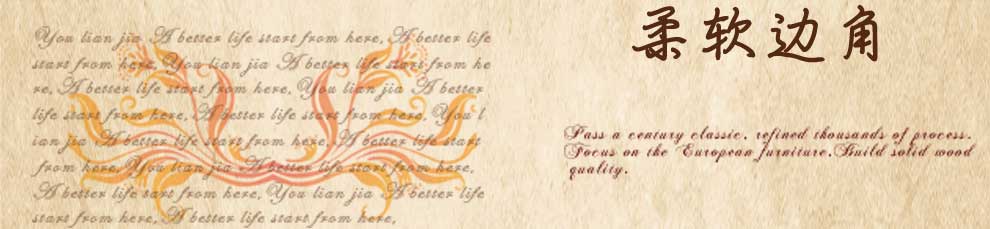 You lian jia A better life start from here, A better life
start from here, You lian jia A better life start from he
re, A better life start from here, You lian jia A better
life start from here, A better life start from here, You l
ian jia A better life start from here, A better life start
from here, You lian jia A better life start from here,
A better life start from here, You lian jia A better life
start from here, A better life start from here,
柔软边角
Pass a century classic, refined thousands of process.
Focus on the European furniture, Build solid wood
quality.